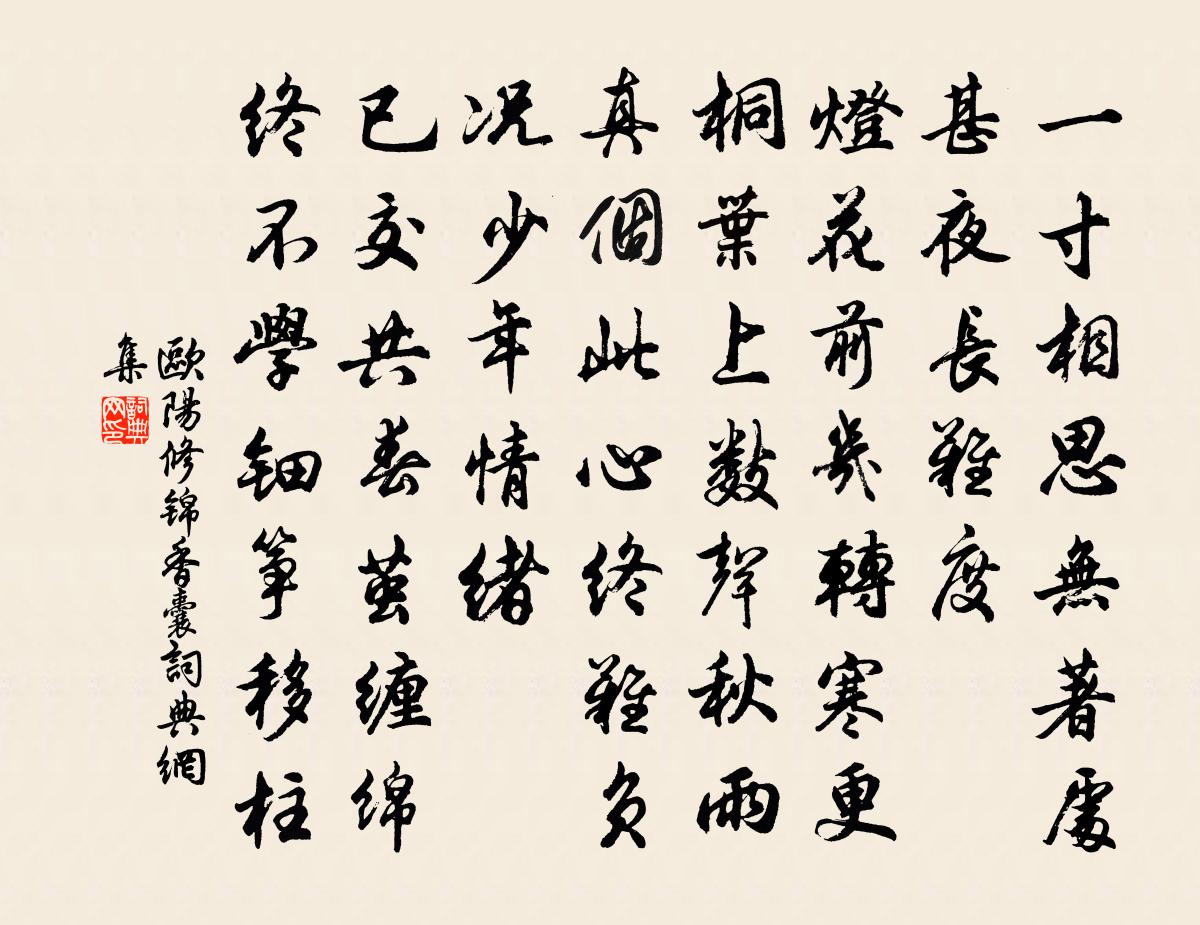 一寸相思無著處
甚夜長難度
燈花前幾轉寒更
桐葉上數聲秋雨
真個此心終難負
況少年情緒
已交共春繭纏綿
終不學鈿箏移柱
歐陽修錦香囊詞典網
集
詞典
网印